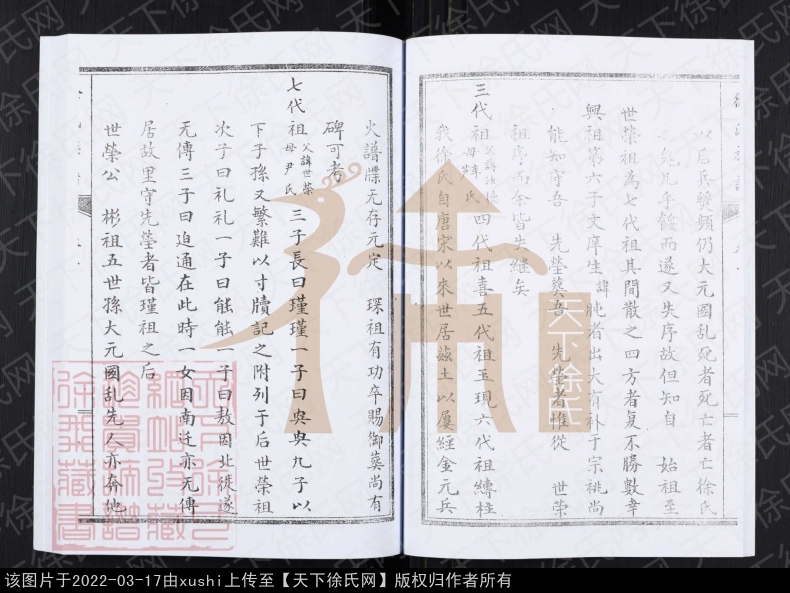 以后兵燹頻仍大元國乱死者死亡者亡徐氏
之絶几乎餒而遂又失序故但知自 始祖至
世荣祖為七代祖其間散之四方者复不勝數幸
興祖第六子文庠生諱旽者出大有补于宗祧尚
能知守吾 先塋葵吾 先塋者惟從 世荣
祖序而余皆失継矣
三代祖父諱法德母韓氏四代祖喜五代祖玉現六代祖縛柱
我徐氏自唐宋以來世居茲土以屢經金元兵
火譜牒无存元定 琛祖有功卒賜御葵尚有
碑可考
七代祖父諱世榮母尹氏三子長曰瑾瑾一子曰㒜㒜九子以
下子孫又繁難以寸牘記之附列于后世榮祖
次子曰礼礼一子曰能能一子曰敖因北徙遂
无傳三子曰迫通在此時一女因南迁亦无傅
居故里守先塋者皆瑾祖之后
世榮公 彬祖五世孫大元國乱先人亦奔他
天下徐氏
天下徐氏网
该图片于2022-03-17由xushi上传至【天下徐氏网】版权归作者所有